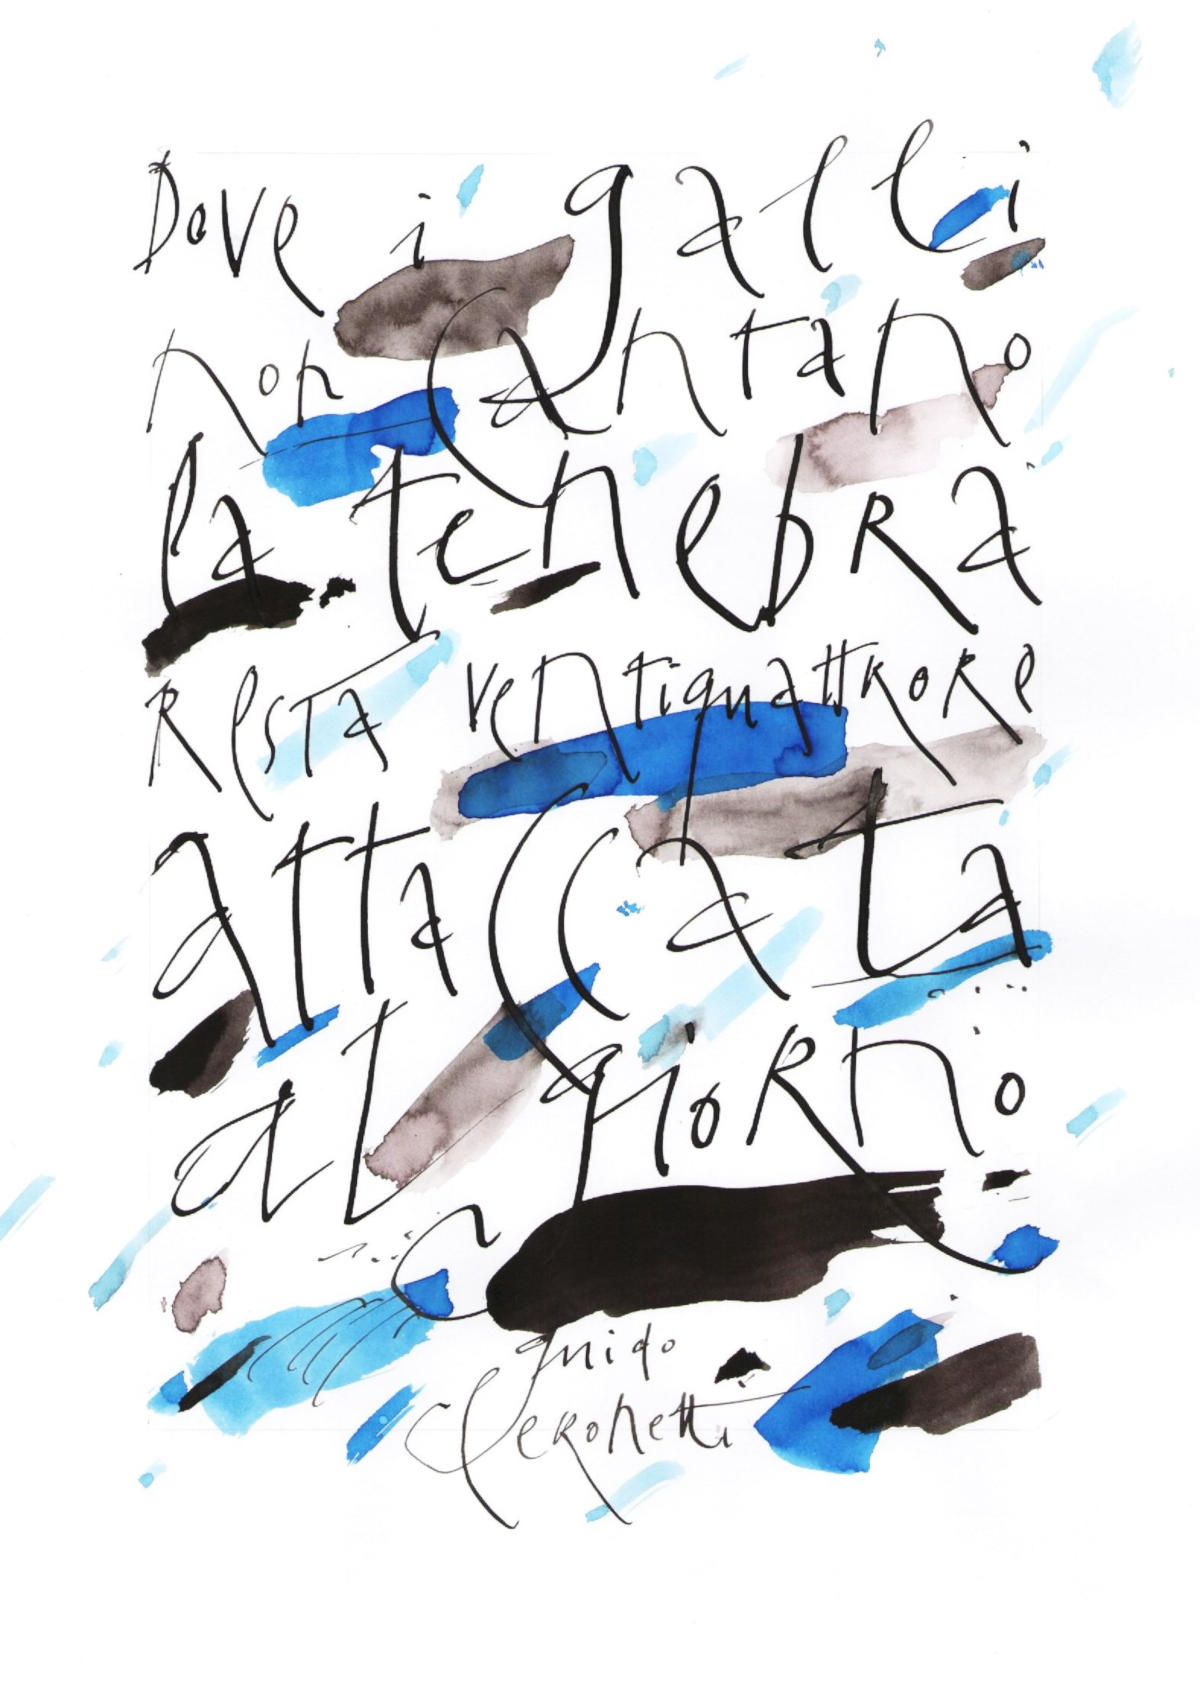 Dove i galli
non cantano
la tenebra
resta ventiquattrore
attaccata
al giorno
guido
Ceronetti